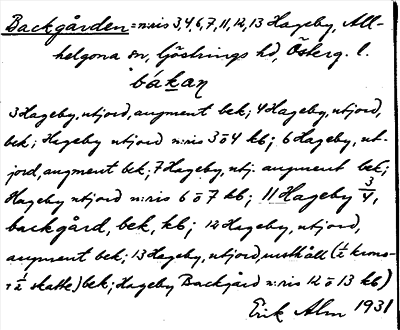 Backgården = n:ris 3,4,6,7,11,12,13 Hageby, All-
helgona sn, Göstrings hd, Österg. l.
bákan
3 Hageby, utjord, augment bek; 4 Hageby, utjord,
bek; Hageby utjord n:ris 3 o 4 kb; 6 Hageby, ut-
jord, augment bek; 7 Hageby, utj. augment bek;
Hageby utjord n:ris 6 o 7 kb; 11 Hageby 3/4,
backgård, bek, kb; 12 Hageby, utjord,
augment bek; 13 Hageby, utjord, (1/2 krono-
1/2 skatte) bek; Hageby Backgård n:ris 12 o 13 kb)
Erik Alm 1931